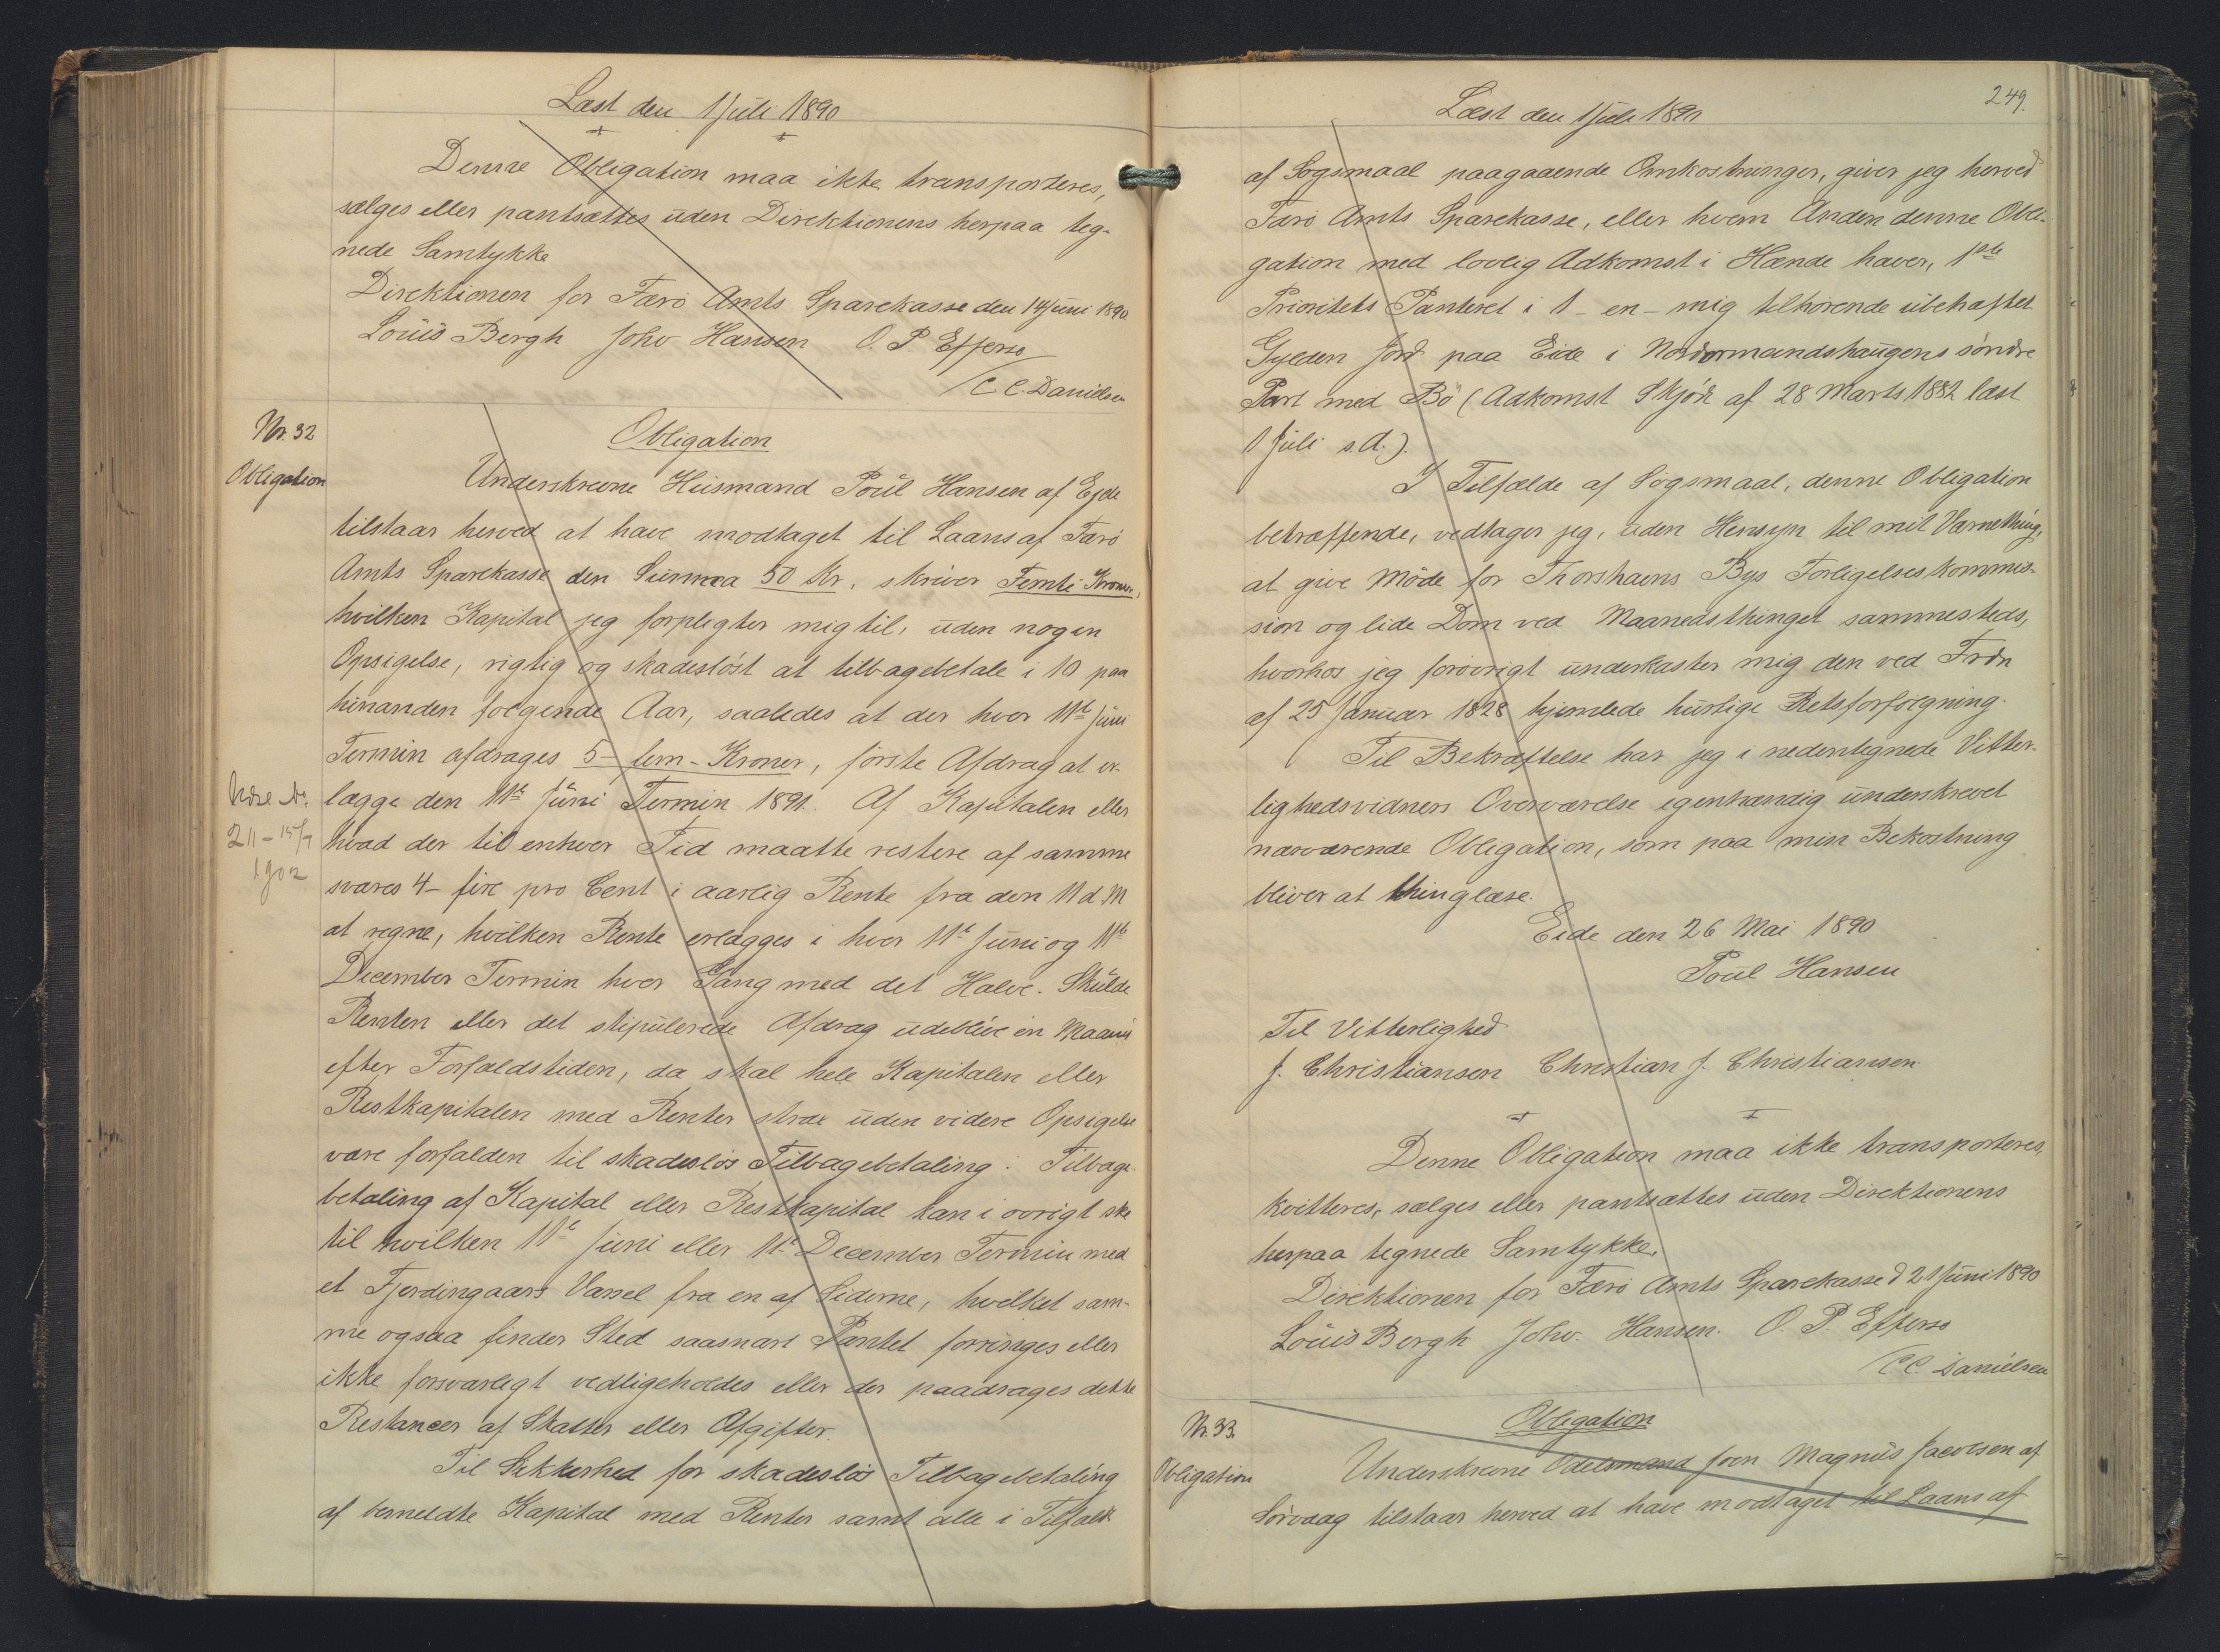 Læst den 1 Juli 1890
Denne Obligation maa ikke transporteres,
sælges eller pantsættes uden Direktionens herpaa teg-
nede Samtykke
Direktionen for Færö Amts Sparekasse den 14 Juni 1890.
Louis Bergh Johv Hansen O. P. Effersö
/C C. Danielsen
Nr. 32
Obligation
Obligation
Underskrevne Huismand Poul Hansen af Ejde
tilstaar herved at have modtaget til Laans af Færö
Amts Sparekasse den Summa 50 Kr., skriver Femti Kroner,
hvilken Kapital jeg forpligter mig til, uden nogen
Opsigelse, rigtig og skadeslöst at tilbagebetale i 10 paa
hinanden fölgende Aar, saaledes at der hver 11te Juni
Termin afdrages 5 - fem - Kroner, förste Afdrag at er-
lægge den 11te Juni Termin 1891. Af Kapitalen eller
hvad der til enhver Tid maatte restere af samme
svares 4 - fire pro Cent i aarlig Rente fra den 11 d. M
at regne, hvilken Rente erlægges i hver 11te Juni og 11te
December Termin hver Gang med det Halve. Skulde
Renten eller det stipulerede Afdrag udeblive en Maaned
efter Forfaldstiden, da skal hele Kapitalen eller
Restkapitalen med Renter strax uden videre Opsigelse
være forfalden til skadeslös Tilbagebetaling. Tilbage-
betaling af Kapital eller Restkapital kan i övrigt ske
til hvilken 11te Juni eller 11te December Termin med
et Fjerdingaars Varsel fra en af Siderne, hvilket sam-
me ogsaa finder Sted saasnart Pantet forringes eller
ikke forsvarligt vedligeholdes eller der paadrages dette
Restancer af Skatter eller Afgifter.
Til Sikkerhed for skadeslös Tilbagebetaling
af bemeldte Kapital med Renter samt alle i Tilfælde
211 - 15/7
1902
249.
Læst den 1 Juli 1890
af Sögsmaal paagaaende Omkostninger, giver jeg herved
Færö Amts Sparekasse, eller hvem Anden denne Obli-
gation med lovlig Adkomst i Hænde haver, 1ste
Prioritets Panteret i 1 - en - mig tilhörende ubehæftet
Gylden Jord paa Eide i Nordormandshaugens söndre
Part med Bö (Adkomst Skjöde af 28 Marts 1882 læst
1 Juli s. A.).
I Tilfælde af Sögsmaal, denne Obligation
betræffende, vedtager jeg, uden Hensyn til mit Værnething,
at give Möde for Thorshavns Bys Forligelseskommis-
sion og lide Dom ved Maanedsthinget sammesteds,
hvorhos jeg forövrigt underkaster mig den ved Frdn
af 25 Januar 1828 hjemlede hurtige Retsforfölgning.
Til Bekræftelse har jeg i nedentegnede Vitter-
lighedsvidners Overværelse egenhændig underskrevet
nærværende Obligation, som paa min Bekostning
bliver at thinglæse.
Eide den 26 Mai 1890
Poul Hansen
Til Vitterlighed
J. Christiansen Christian J. Christiansen
Denne Obligation maa ikke transporteres,
kvitteres, sælges eller pantsættes uden Direktionens
herpaa tegnede Samtykke.
Direktionen for Færö Amts Sparekasse d 21 Juni 1890
Louis Bergh Johv. Hansen. O. P. Effersö
/C. C. Danielsen
Nr. 33.
Obligation
Obligation
Underskrevne Odelsmand Joen Magnus Jacobsen af
Sörvaag tilstaar herved at have modtaget til Laans af